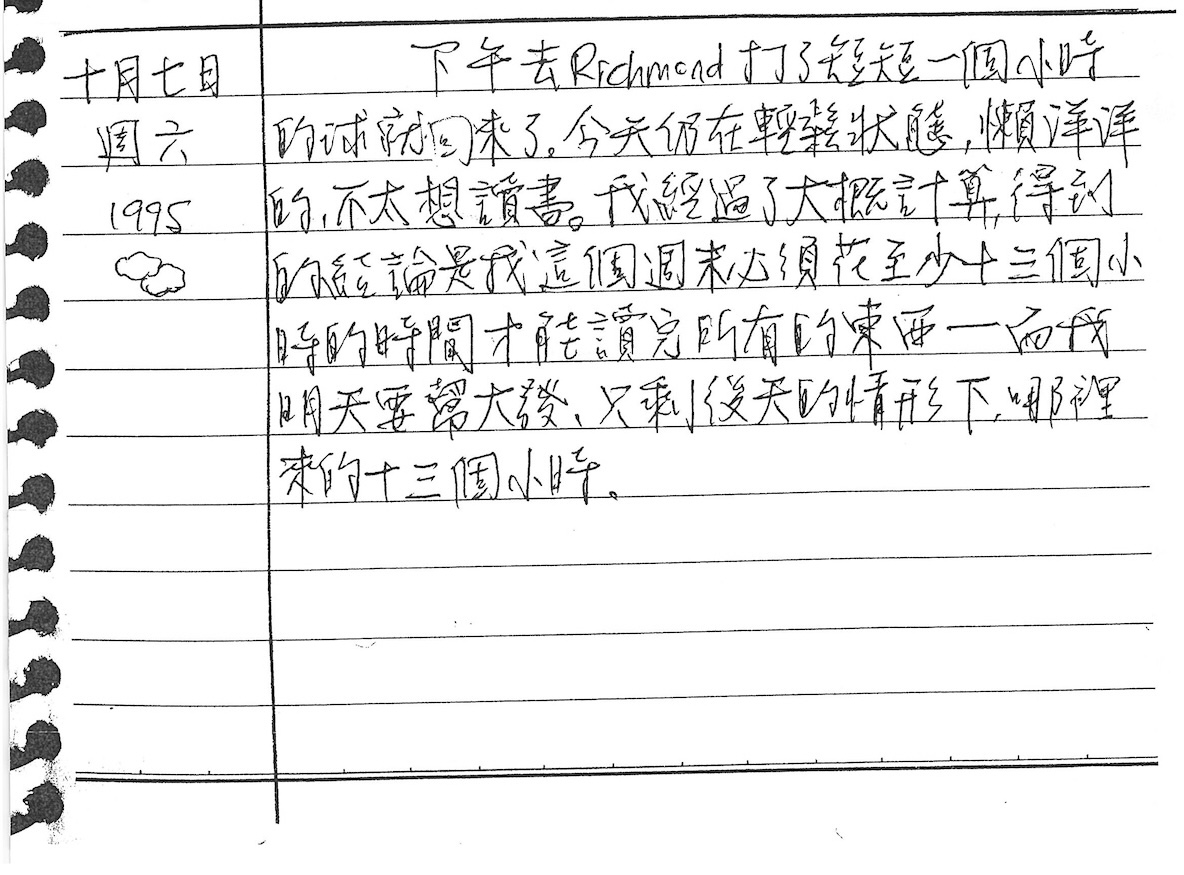 十月七日
週六
1995
下午去Richmond打了短短一個小時
的球就回來了。今天仍在輕鬆狀態,懶洋洋
的,不太想讀書。我經過了大概計算,得到
的結論是我這個週末必須花至少十三個小
時的時間才能讀完所有的東西—而我
明天要幫大發、只剩後天的情形下,哪裡
來的十三個小時。